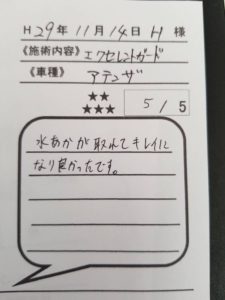 H29年11月14日 H 様
《施術内容》エクセレントガード
《車種》 アテンザ
★★
★★★ 5 / 5
水あかが取れてキレイに
なり良かったです。